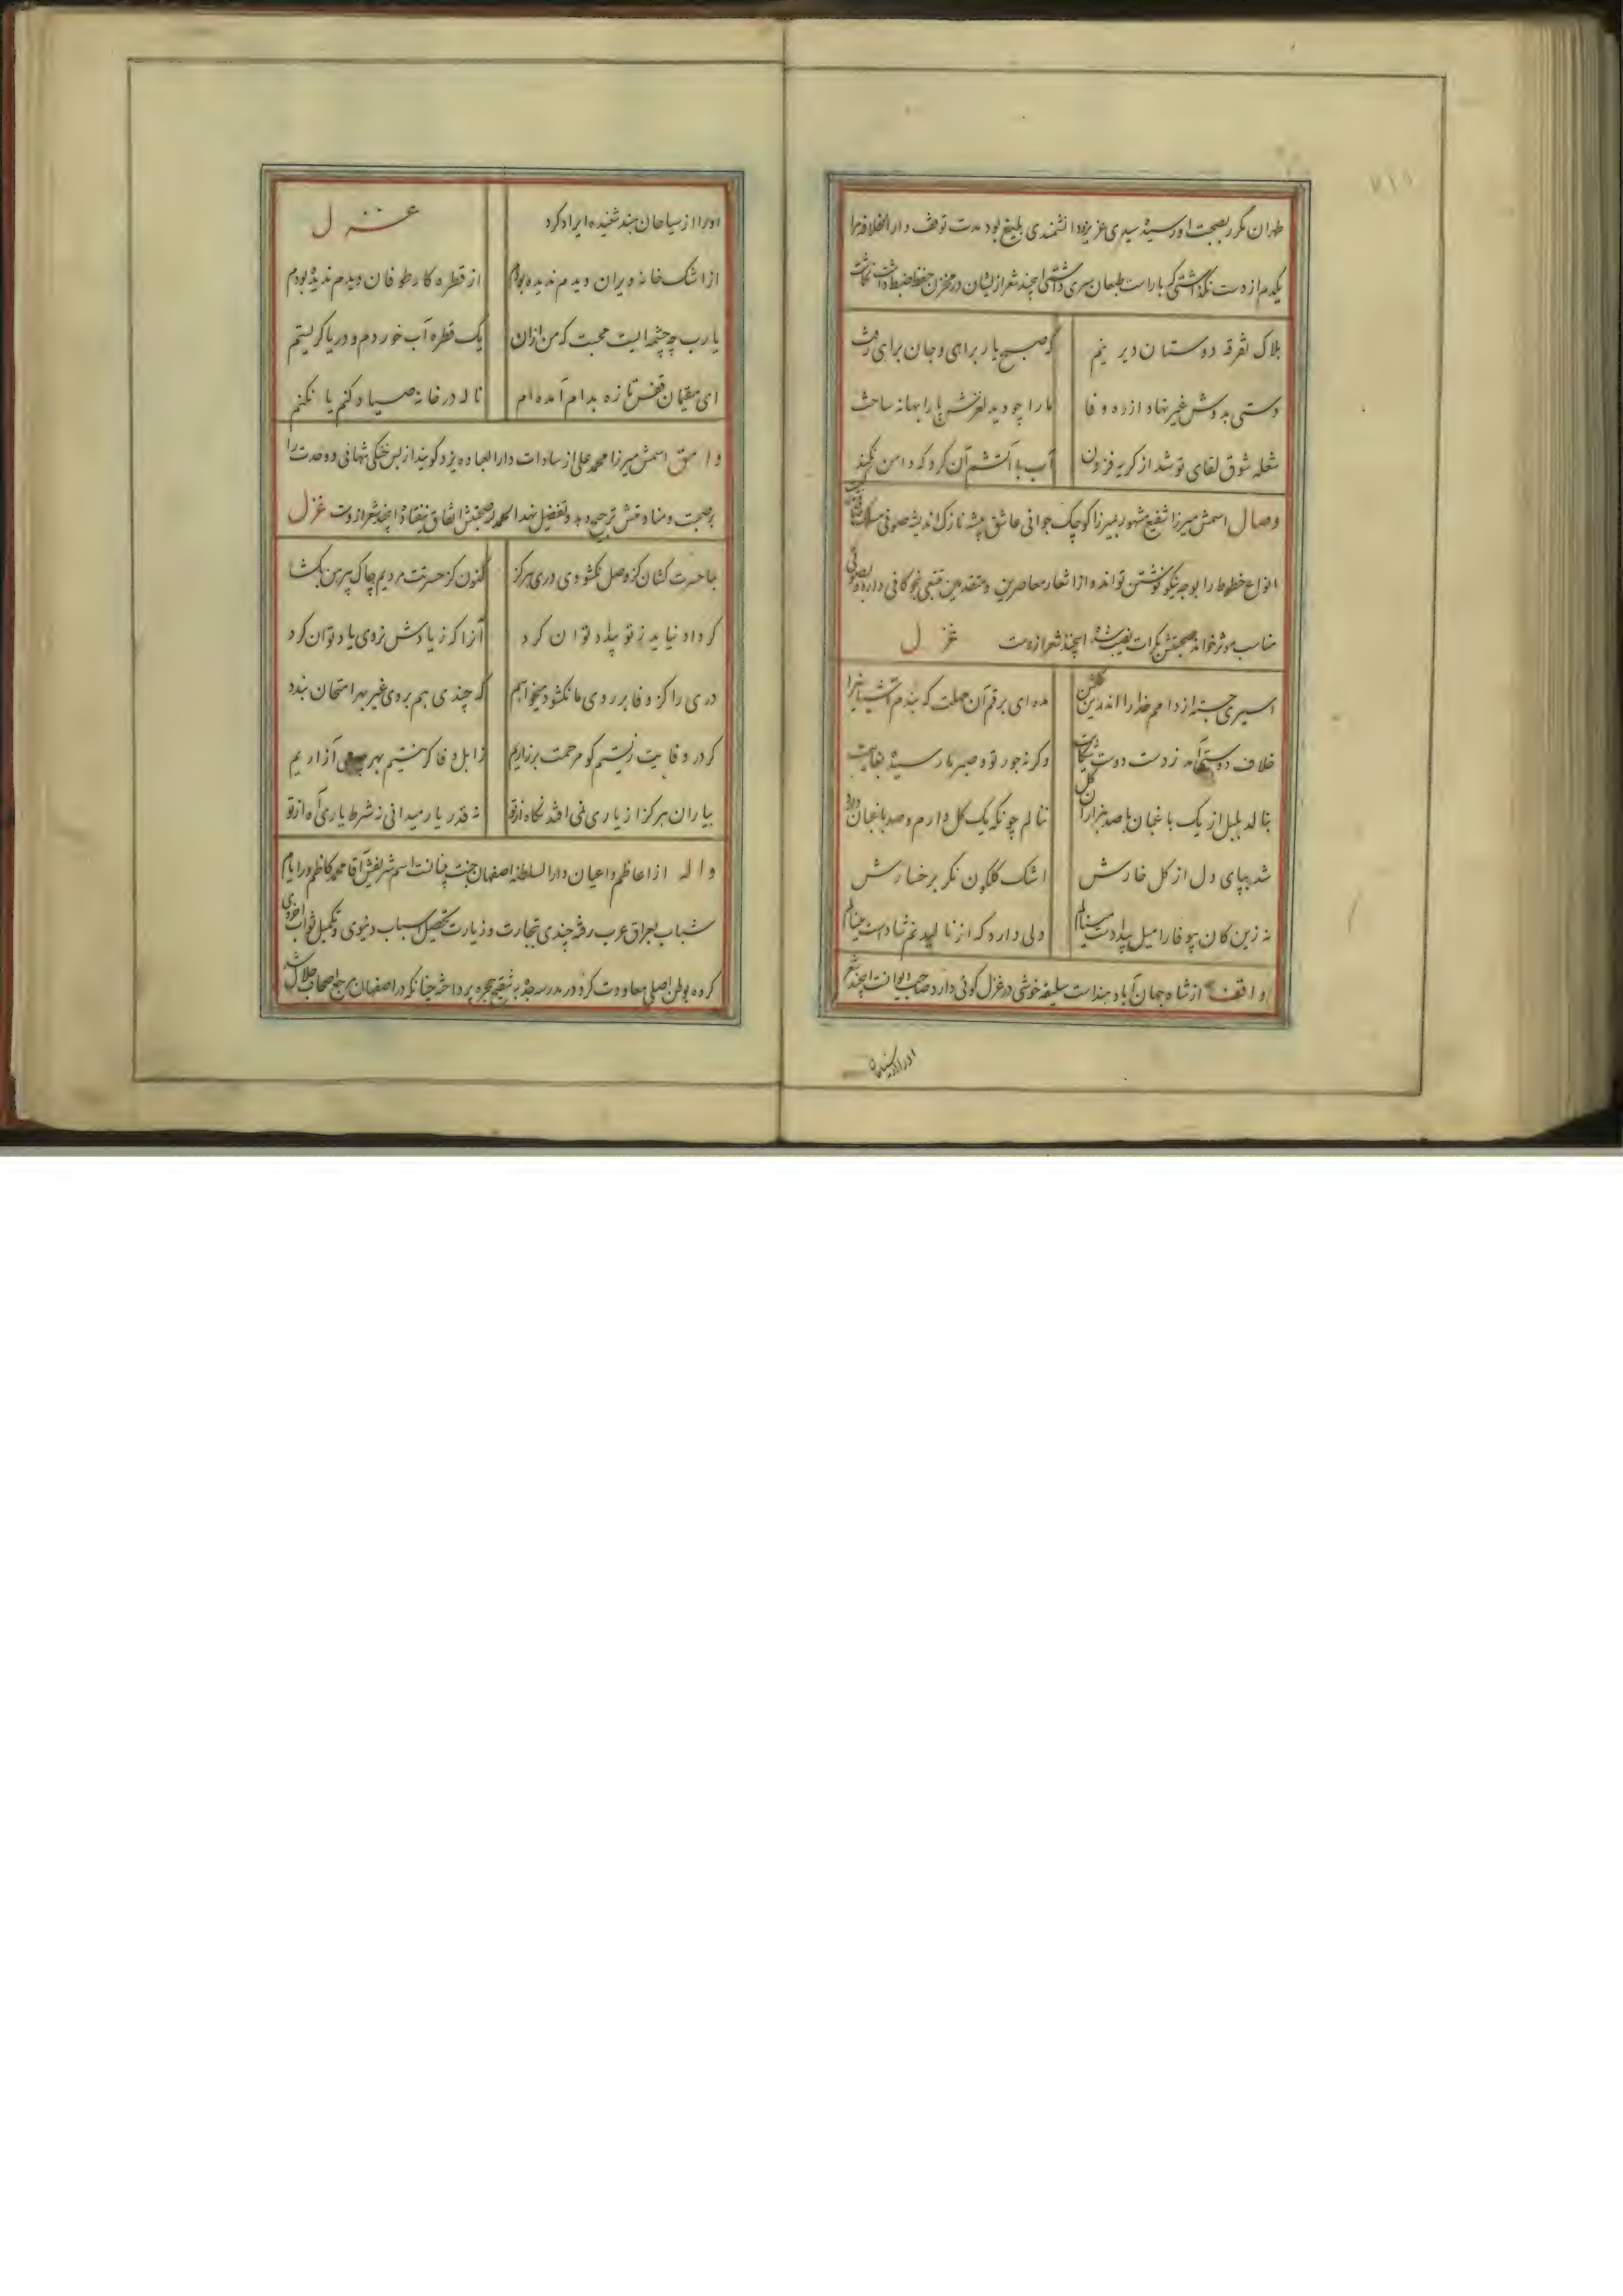 طهران مکرر بصحبت او رسیده سیدی عزیز و دانشمندی بلیغ بود مدت توقف دار الخلافه مرا
یکدم از دست نگذاشتی که با راست طبعان سری داشتی اینچند شعر از ایشان در مخزن حفظ ضبط داشت نگاشت
هلاک تفرقه دوستان دیرینم
که صبح یار براهی و جان براهی رفت
دستی بدوش غیر نهاد از ره وفا
ما را چو دید لغزش پا را بهانه ساخت
شعله شوق لقای تو شد از گریه فزون
آب با آتشم آن کرد که دامن نکند
وصال اسمش میرزا شفیع مشهور بمیرزا کوچک جوانی عاشق پیشه نازک اندیشه صوفی مسلک
انواع خطوط را بوجه نیکو نوشتن تواند و از اشعار معاصرین و متقدمین متتبعی کافی دارد و بصوتی
مناسب موثر خواند صحبتش بکرات نصیب شده اینچند شعر ازوست غزل
اسیری جسته از دامم خدا را اندرین گلشن
مده ای برق آن مهلت که بندم آشیانی را
خلاف دوستی آمد ز دست دوست شکایت
وگرنه جور تو و صبر ما رسیده بغایت
بنالد بلبل از یک باغبان با صد هزاران گل
ننالم چونکه یک گل دارم و صد باغبان دارد
شد بپای دل از گل خارش
اشک گلگون نگر برخسارش
نه زین کان بیوفا را میل بیدادست مینالم
ولی دارد که از نالیدنم شادست مینالم
واقف از شاه جهان آباد هند است سلیقه خوشی در غزل گوئی دارد صاحب دیوانست اینچند شعر
اورا از سیاحان هند شنیده ایراد کرد
غزل
از اشک خانه ویران دیدم ندیده بودم
از قطره کار طوفان دیدم ندیده بودم
یارب چه چشمه ایست محبت که من ازان
یک قطره آب خوردم و دریا گریستم
ای مقیمان قفس تازه بدام آمده ام
ناله در خانه صیاد کنم یا نکنم
وامق اسمش میرزا محمد علی از سادات دار العباده یزد گویند از بس خشکی تنهائی و وحدت را
بر صحبت و منادمتش ترجیح دهد و تفضیل نهد الحمد لله صحبتش اتفاق نیفتاده اینچند شعر ازوست غزل
بما حسرت کشان کز وصل نگشودی دری هرگز
کنون کز حسرتت مردیم چاک پیرهن بگشا
گر داد نیاید ز تو بیداد توان کرد
آنرا که ز یادش نروی یاد توان کرد
دری را کز وفا بر روی ما نگشود میخواهم
که چندی هم بروی غیر بهر امتحان بندد
گر در وفایت زیستم کو مرحمت بر زاریم
ز اهل وفا گر نیستم بهر چه می آزاریم
بیاران هرگز از یاری نمی افتد نگاه از تو
نه قدر یار میدانی نه شرط یاری آه از تو
واله از اعاظم و اعیان دار السلطنه اصفهان جنت بنیانت اسم شریفش آقا محمد کاظم در ایام
شباب بعراق عرب رفته چندی بتجارت و زیارت تحصیل اسباب دنیوی و تکمیل ثواب اخروی
کرده بوطن اصلی معاودت کرد و در مدرسه جده بتنقیح حجره پرداخته چنانکه در اصفهان مرجع اصحاب
اورا از سیاحان